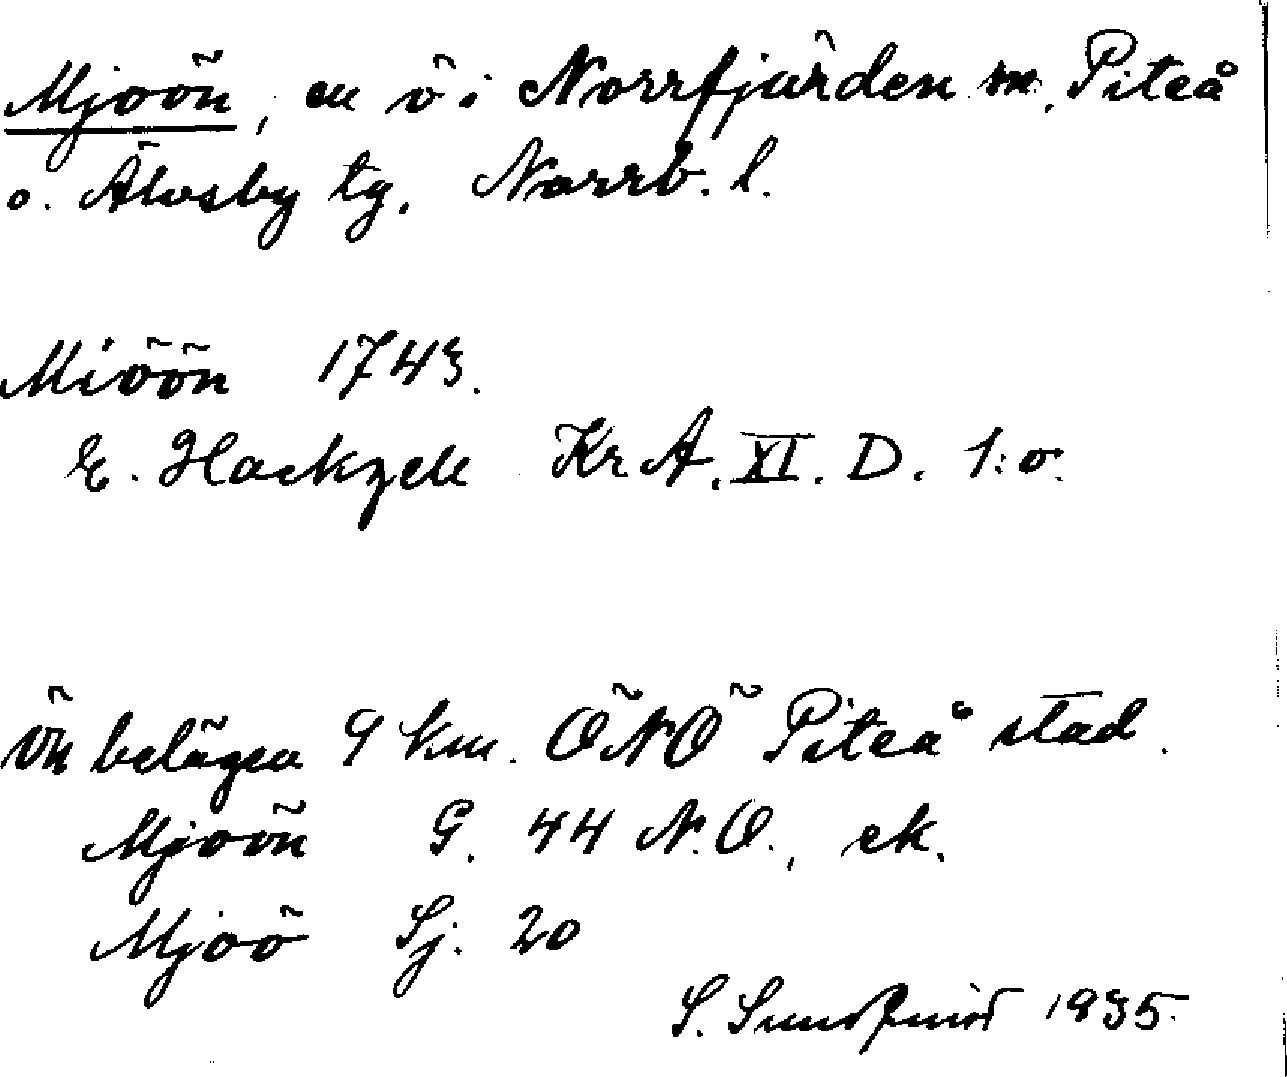 Mjoön, en ö i Norrfjärden sn, Piteå
o. Älvsby tg. Norrb. l.
Miöön 1743.
E. Hackzell KrA. XI. D. 1:o.
Ön belägen 9 km. ÖNÖ Piteå stad.
Mjoön G. 44 N.O., ek.
Mjoö Sj. 20
S. 1935.